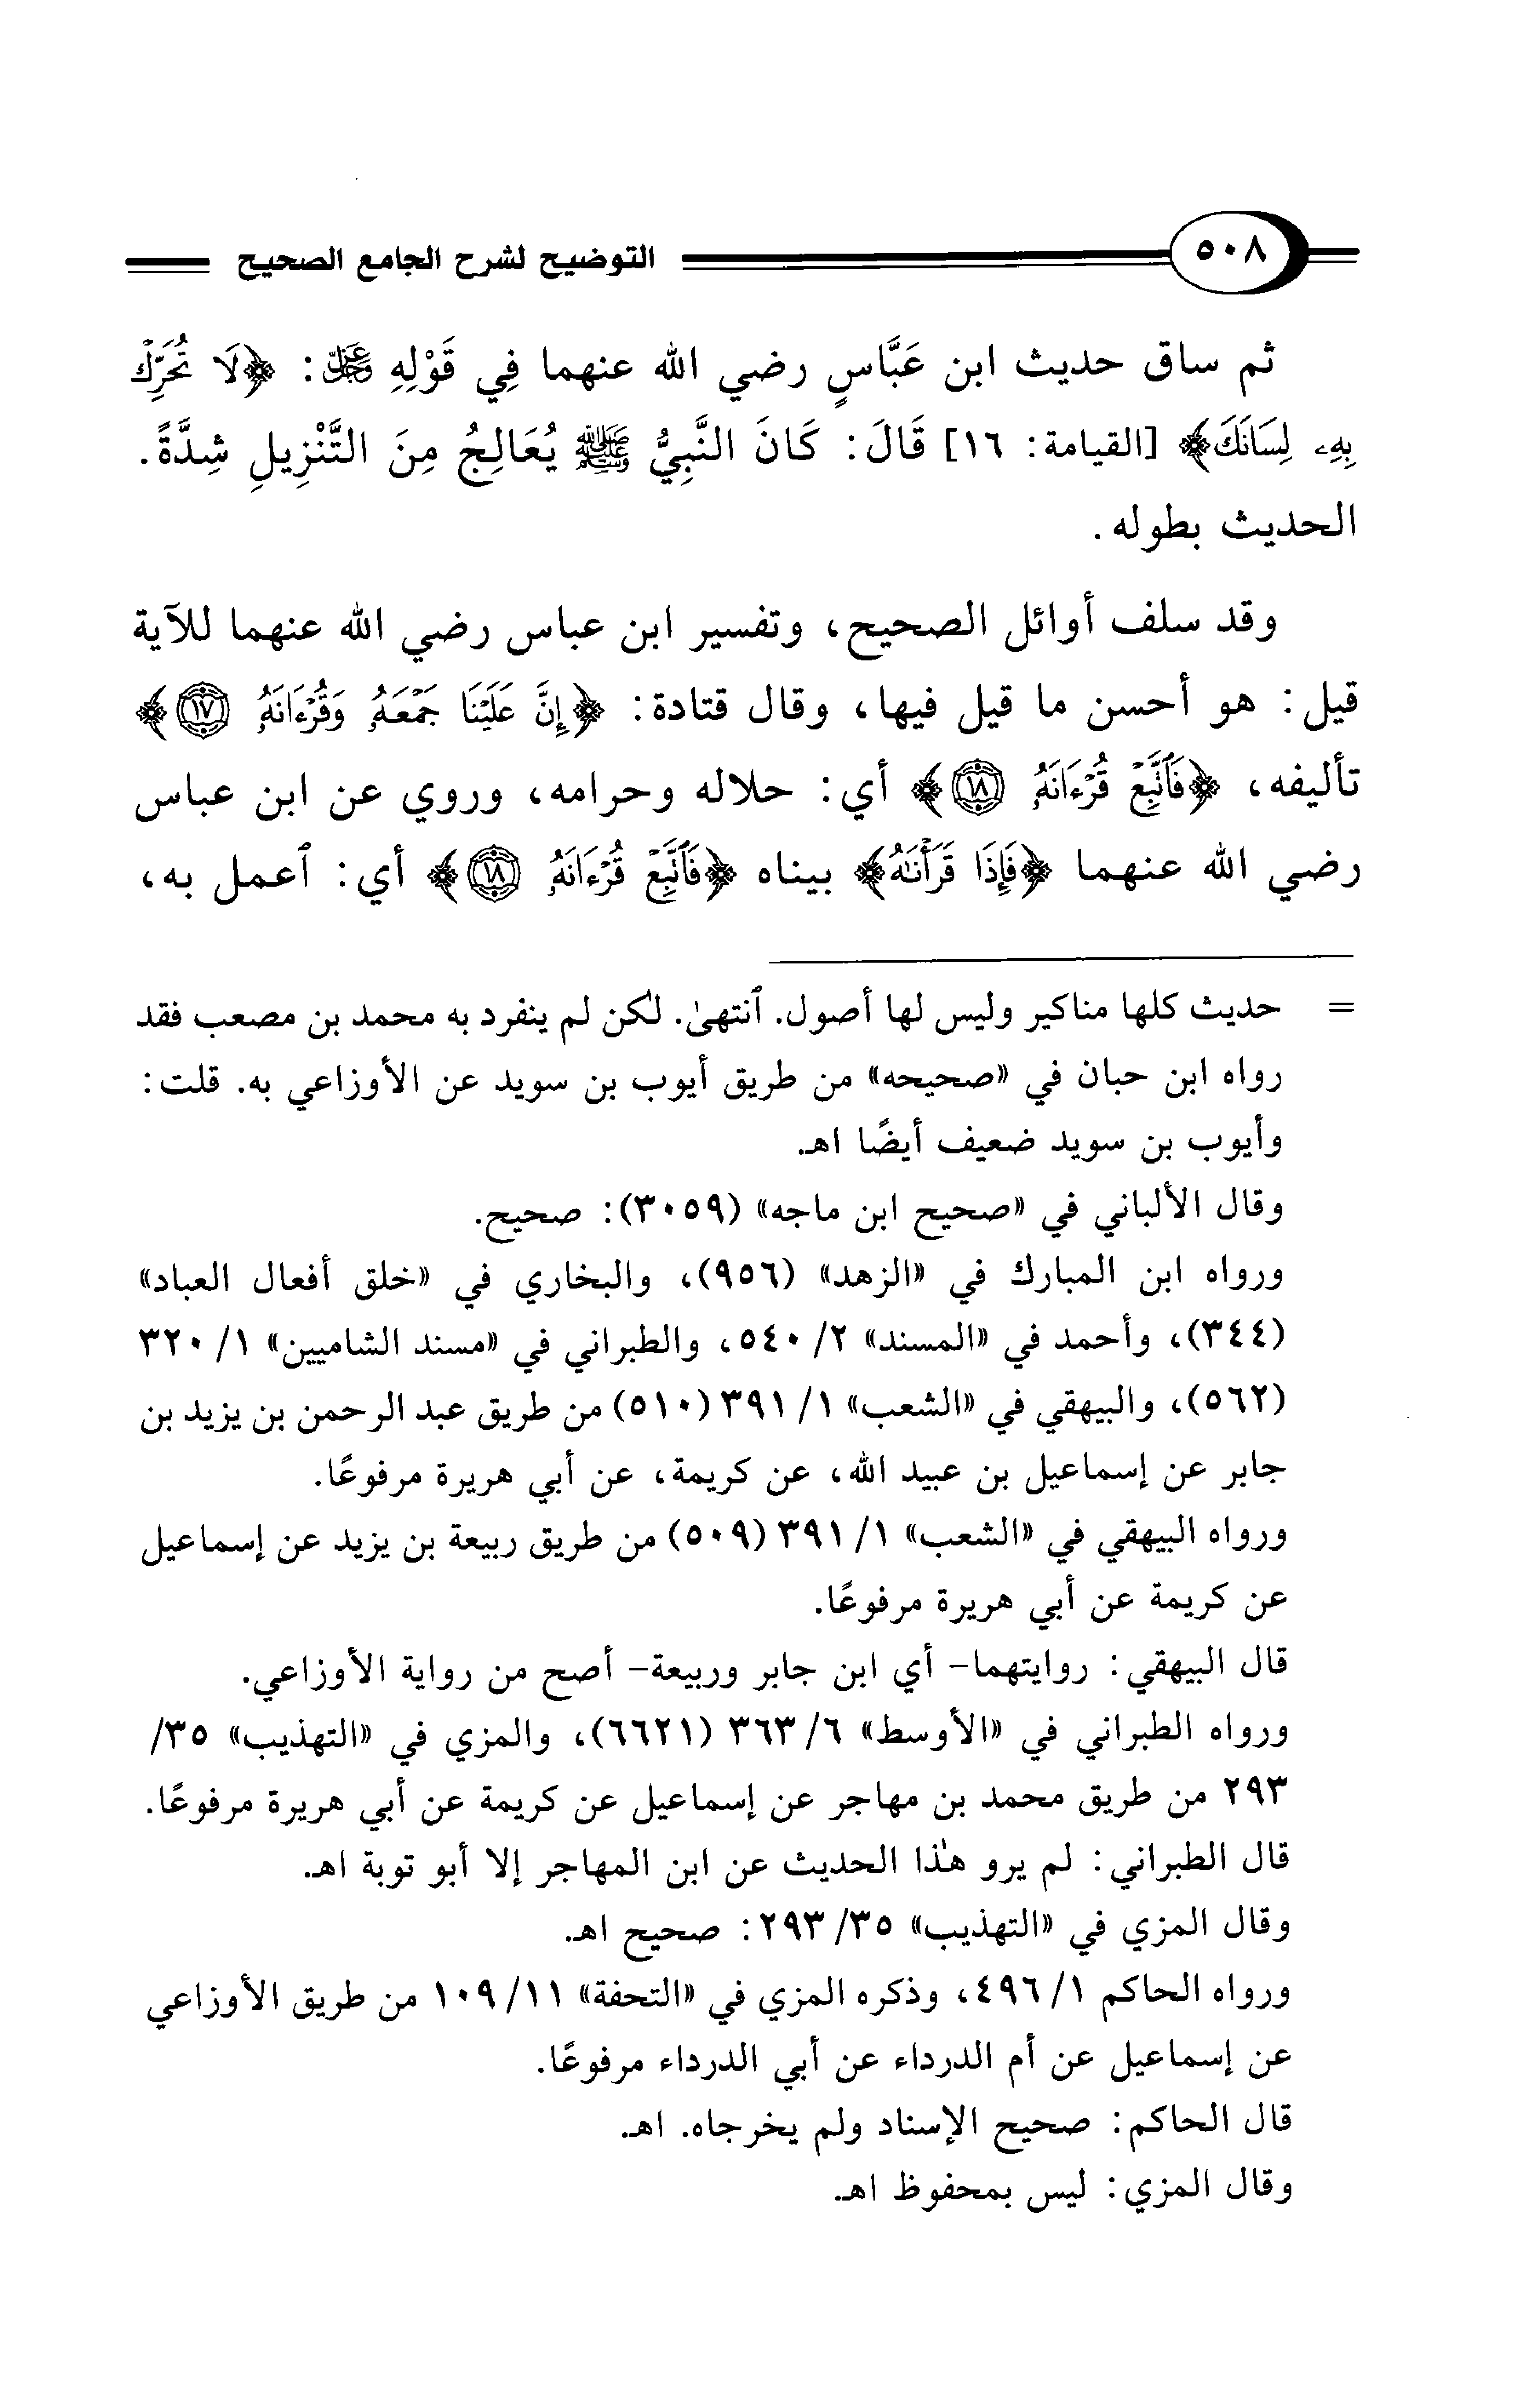 ٥٠٨ التوضيح لشرح الجامع الصحيح
ثم ساق حديث ابن عَبَّاسٍ رضي الله عنهما فِي قَوْلِهِ ﷿: ﴿لَا تُحَرِّكْ
بِهِۦ لِسَانَكَ﴾ [القيامة: ١٦] قَالَ: كَانَ النَّبِيُّ ﷺ يُعَالِجُ مِنَ التَّنْزِيلِ شِدَّةً.
الحديث بطوله.
وقد سلف أوائل الصحيح، وتفسير ابن عباس رضي الله عنهما للآية
قيل: هو أحسن ما قيل فيها، وقال قتادة: ﴿إِنَّ عَلَيْنَا جَمْعَهُۥ وَقُرْءَانَهُۥ ١٧﴾
تأليفه، ﴿فَٱتَّبِعْ قُرْءَانَهُۥ ١٨﴾ أي: حلاله وحرامه، وروي عن ابن عباس
رضي الله عنهما ﴿فَإِذَا قَرَأْنَٰهُ﴾ بيناه ﴿فَٱتَّبِعْ قُرْءَانَهُۥ ١٨﴾ أي: ٱعمل به،
= حديث كلها مناكير وليس لها أصول. ٱنتهىٰ. لٰكن لم ينفرد به محمد بن مصعب فقد
رواه ابن حبان في «صحيحه» من طريق أيوب بن سويد عن الأوزاعي به. قلت:
وأيوب بن سويد ضعيف أيضًا اهـ.
وقال الألباني في «صحيح ابن ماجه» (٣٠٥٩): صحيح.
ورواه ابن المبارك في «الزهد» (٩٥٦)، والبخاري في «خلق أفعال العباد»
(٣٤٤)، وأحمد في «المسند» ٢/ ٥٤٠، والطبراني في «مسند الشاميين» ١/ ٣٢٠
(٥٦٢)، والبيهقي في «الشعب» ١/ ٣٩١ (٥١٠) من طريق عبد الرحمن بن يزيد بن
جابر عن إسماعيل بن عبيد الله، عن كريمة، عن أبي هريرة مرفوعًا.
ورواه البيهقي في «الشعب» ١/ ٣٩١ (٥٠٩) من طريق ربيعة بن يزيد عن إسماعيل
عن كريمة عن أبي هريرة مرفوعًا.
قال البيهقي: روايتهما- أي ابن جابر وربيعة- أصح من رواية الأوزاعي.
ورواه الطبراني في «الأوسط» ٦/ ٣٦٣ (٦٦٢١)، والمزي في «التهذيب» ٣٥/
٢٩٣ من طريق محمد بن مهاجر عن إسماعيل عن كريمة عن أبي هريرة مرفوعًا.
قال الطبراني: لم يرو هٰذا الحديث عن ابن المهاجر إلا أبو توبة اهـ.
وقال المزي في «التهذيب» ٣٥/ ٢٩٣: صحيح اهـ.
ورواه الحاكم ١/ ٤٩٦، وذكره المزي في «التحفة» ١١/ ١٠٩ من طريق الأوزاعي
عن إسماعيل عن أم الدرداء عن أبي الدرداء مرفوعًا.
قال الحاكم: صحيح الإسناد ولم يخرجاه. اهـ.
وقال المزي: ليس بمحفوظ اهـ.